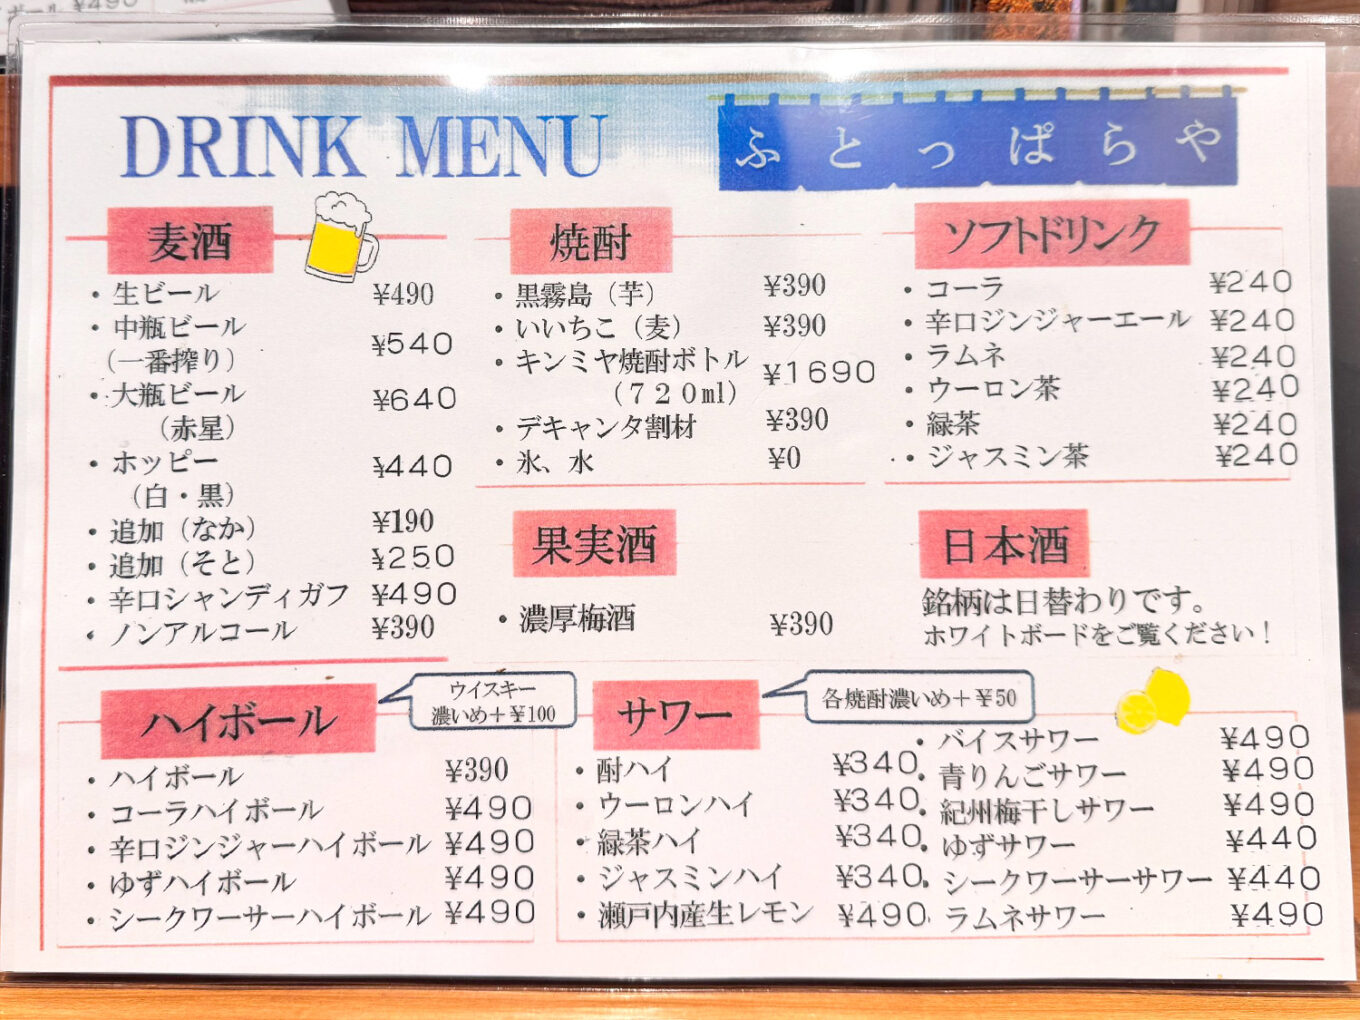 ¥490
DRINK MENU
ふとっぱらや
麦酒
・生ビール ¥490
・中瓶ビール
(一番搾り) ¥540
・大瓶ビール
(赤星) ¥640
・ホッピー
(白・黒) ¥440
・追加(なか) ¥190
・追加(そと) ¥250
・辛口シャンディガフ ¥490
・ノンアルコール ¥390
焼酎
・黒霧島(芋) ¥390
・いいちこ(麦) ¥390
・キンミヤ焼酎ボトル
(720ml) ¥1690
・デキャンタ割材 ¥390
・氷、水 ¥0
ソフトドリンク
・コーラ ¥240
・辛口ジンジャーエール ¥240
・ラムネ ¥240
・ウーロン茶 ¥240
・緑茶 ¥240
・ジャスミン茶 ¥240
果実酒
・濃厚梅酒 ¥390
日本酒
銘柄は日替わりです。
ホワイトボードをご覧ください!
ハイボール
ウイスキー
濃いめ+¥100
・ハイボール ¥390
・コーラハイボール ¥490
・辛口ジンジャーハイボール ¥490
・ゆずハイボール ¥490
・シークワーサーハイボール ¥490
サワー
各焼酎濃いめ+¥50
・酎ハイ ¥340
・ウーロンハイ ¥340
・緑茶ハイ ¥340
・ジャスミンハイ ¥340
・瀬戸内産生レモン ¥490
・バイスサワー ¥490
・青りんごサワー ¥490
・紀州梅干しサワー ¥490
・ゆずサワー ¥440
・シークワーサーサワー ¥440
・ラムネサワー ¥490